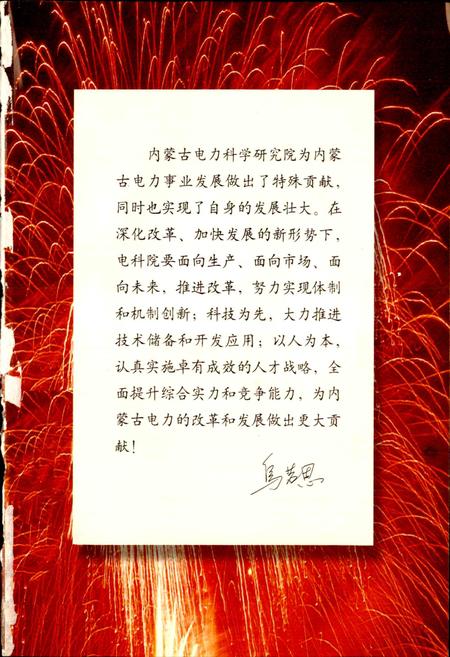 内蒙古电力科学研究院为内蒙
古电力事业发展做出了特殊贡献，
同时也实现了自身的发展壮大。在
深化改革、加快发展的新形势下，
电科院要面向生产、面向市场、面
向未来，推进改革，努力实现体制
和机制创新；科技为先，大力推进
技术储备和开发应用；以人为本，
认真实施卓有成效的人才战略，全
面提升综合实力和竞争能力，为内
蒙古电力的改革和发展做出更大贡
献！
乌若思